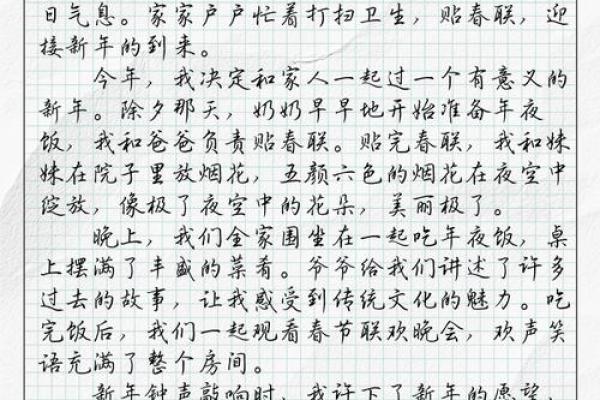 日气息。家家户户忙着打扫卫生，贴春联，迎
接新年的到来。
今年，我决定和家人一起过一个有意义的
新年。除夕那天，奶奶早早地开始准备年夜
饭，我和爸爸负责贴春联。贴完春联，我和妹
妹在院子里放烟花，五颜六色的烟花在夜空中
绽放，像极了夜空中的花朵，美丽极了。
晚上，我们全家围坐在一起吃年夜饭，桌
上摆满了丰盛的菜肴。爷爷给我们讲述了许多
过去的故事，让我感受到传统文化的魅力。吃
完饭后，我们一起观看春节联欢晚会，欢声笑
语充满了整个房间。
新年钟声敲响时，我许下了新年的愿望，